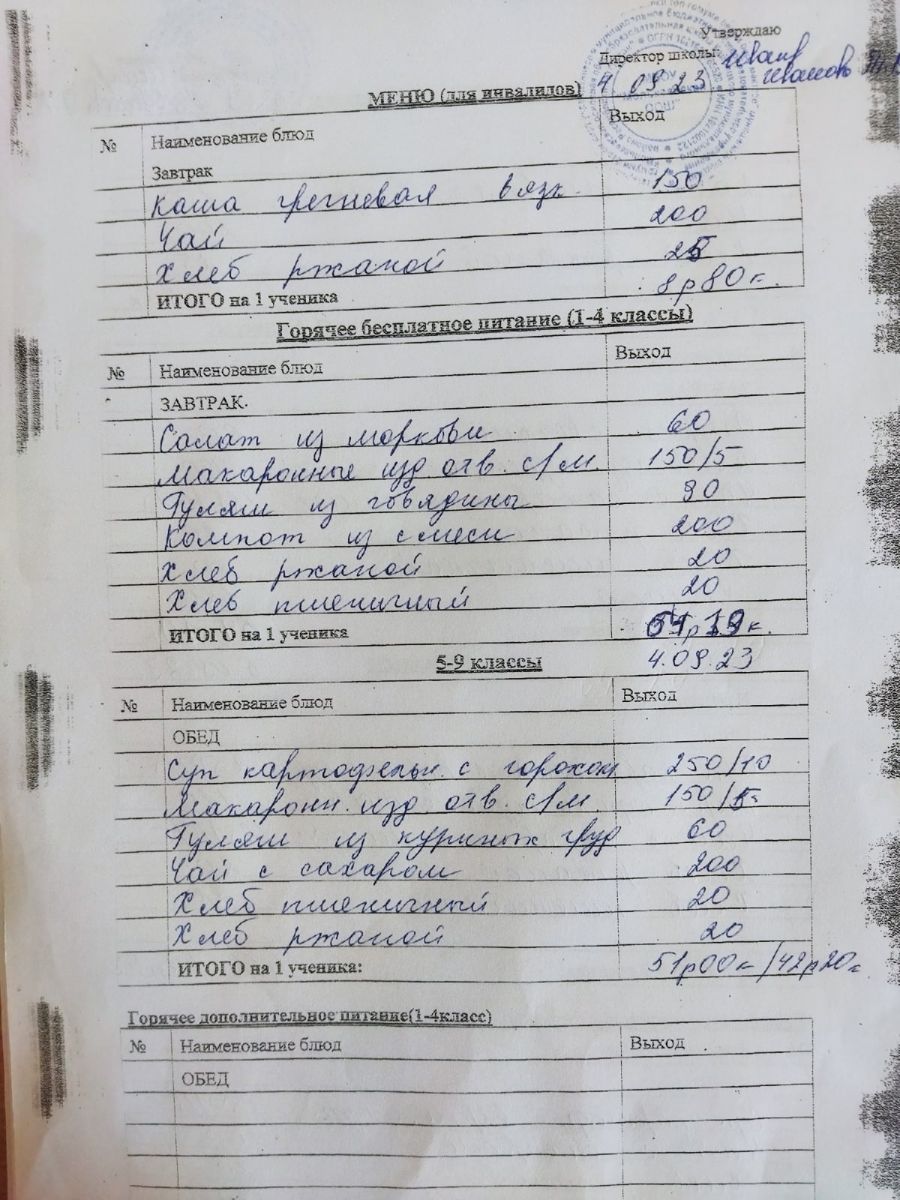 Утверждаю
Директор школы
4.09.23
МЕНЮ (для инвалидов)
№ Наименование блюд Выход
Завтрак
каша гречневая вязк. 150
Чай 200
Хлеб ржаной 25
ИТОГО на 1 ученика 8р80к.
Горячее бесплатное питание (1-4 классы)
№ Наименование блюд Выход
ЗАВТРАК
Салат из моркови 60
Макаронные изд отв. с/м 150/5
Гуляш из говядины 90
Компот из смеси 200
Хлеб ржаной 20
Хлеб пшеничный 20
ИТОГО на 1 ученика
5-9 классы 4.09.23
№ Наименование блюд Выход
ОБЕД
Суп картофельн. с горохом 250/10
Макаронн. изд отв. с/м 150/5
Гуляш из куриных груд 60
Чай с сахаром 200
Хлеб пшеничный 20
Хлеб ржаной 20
ИТОГО на 1 ученика: 51р00к/42р20к
Горячее дополнительное питание(1-4класс)
№ Наименование блюд Выход
ОБЕД